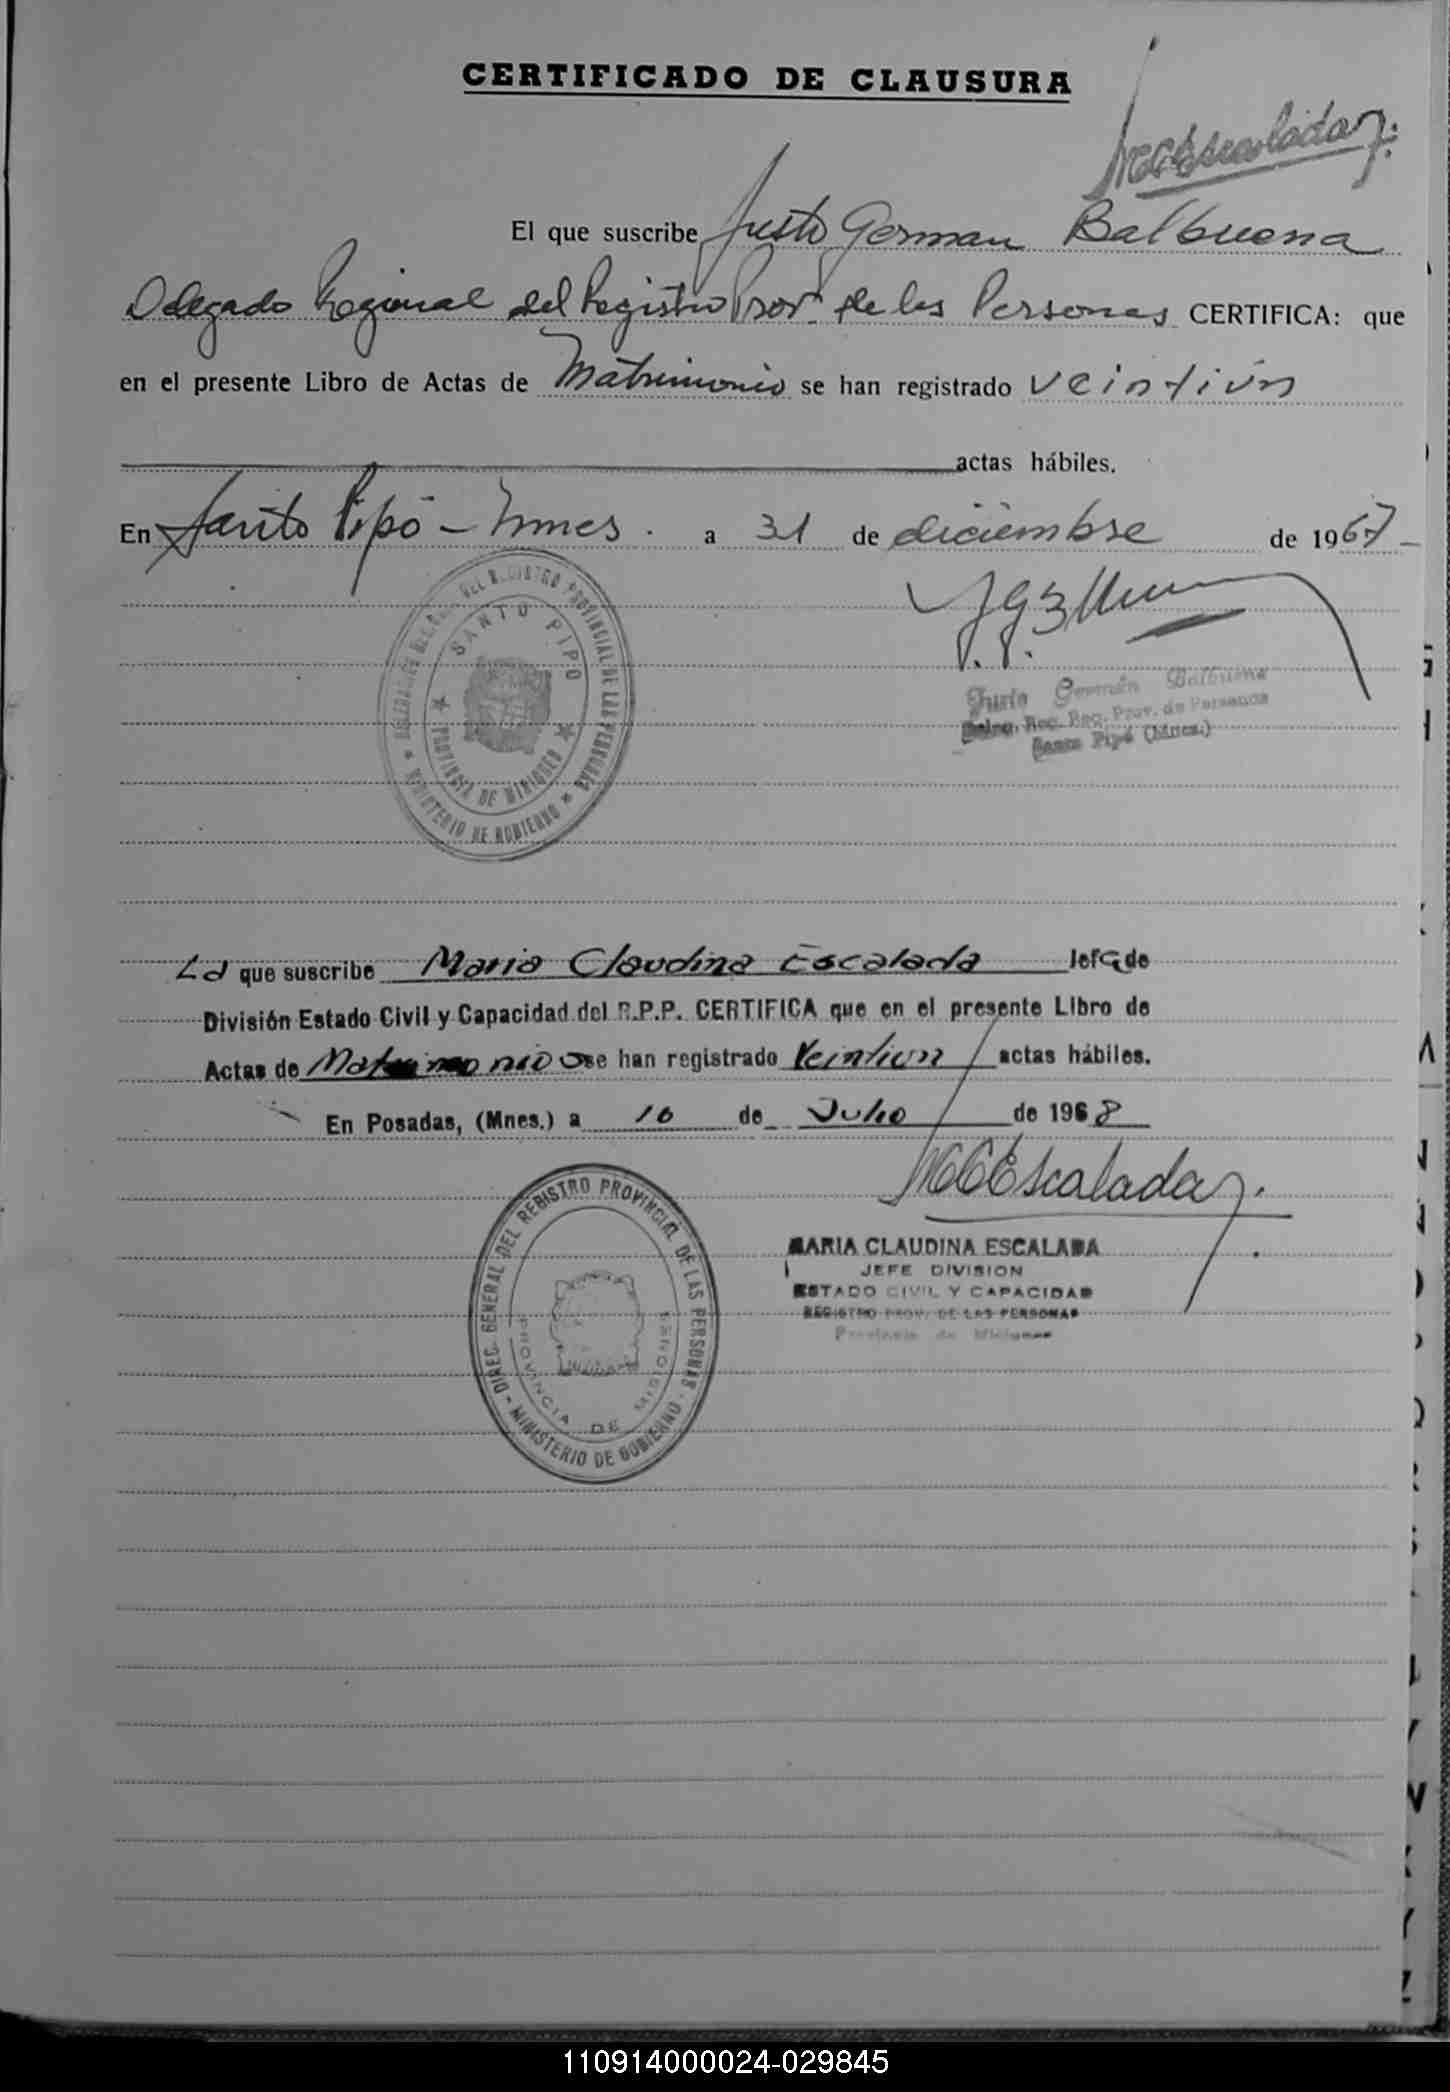 CERTIFICADO DE CLAUSURA
MCEscalada
El que suscribe Justo German Balbuena
Delegado Regional del Registro Prov. de las Personas CERTIFICA: que
en el presente Libro de Actas de Matrimonio se han registrado veintiún
actas hábiles.
En Santo Pipó - Mnes. a 31 de diciembre de 1967
SANTO PIPO
PROVINCIA DE MISIONES
DEL REGISTRO PROVINCIAL DE LAS PERSONAS
MINISTERIO DE GOBIERNO
Justo Germán Balbuena
Reg. Prov. de Personas
Santo Pipó (Mnes.)
La que suscribe Maria Claudina Escalada Jefa de
División Estado Civil y Capacidad del R.P.P. CERTIFICA que en el presente Libro de
Actas de Matrimonio se han registrado Veintiun actas hábiles.
En Posadas, (Mnes.) a 16 de Julio de 1968
MCEscalada
DIREC. GENERAL DEL REGISTRO PROVINCIAL DE LAS PERSONAS - MINISTERIO DE GOBIERNO -
PROVINCIA DE MISIONES
MARIA CLAUDINA ESCALADA
JEFE DIVISION
ESTADO CIVIL Y CAPACIDAD
REGISTRO PROV. DE LAS PERSONAS
Provincia de Misiones
110914000024-029845